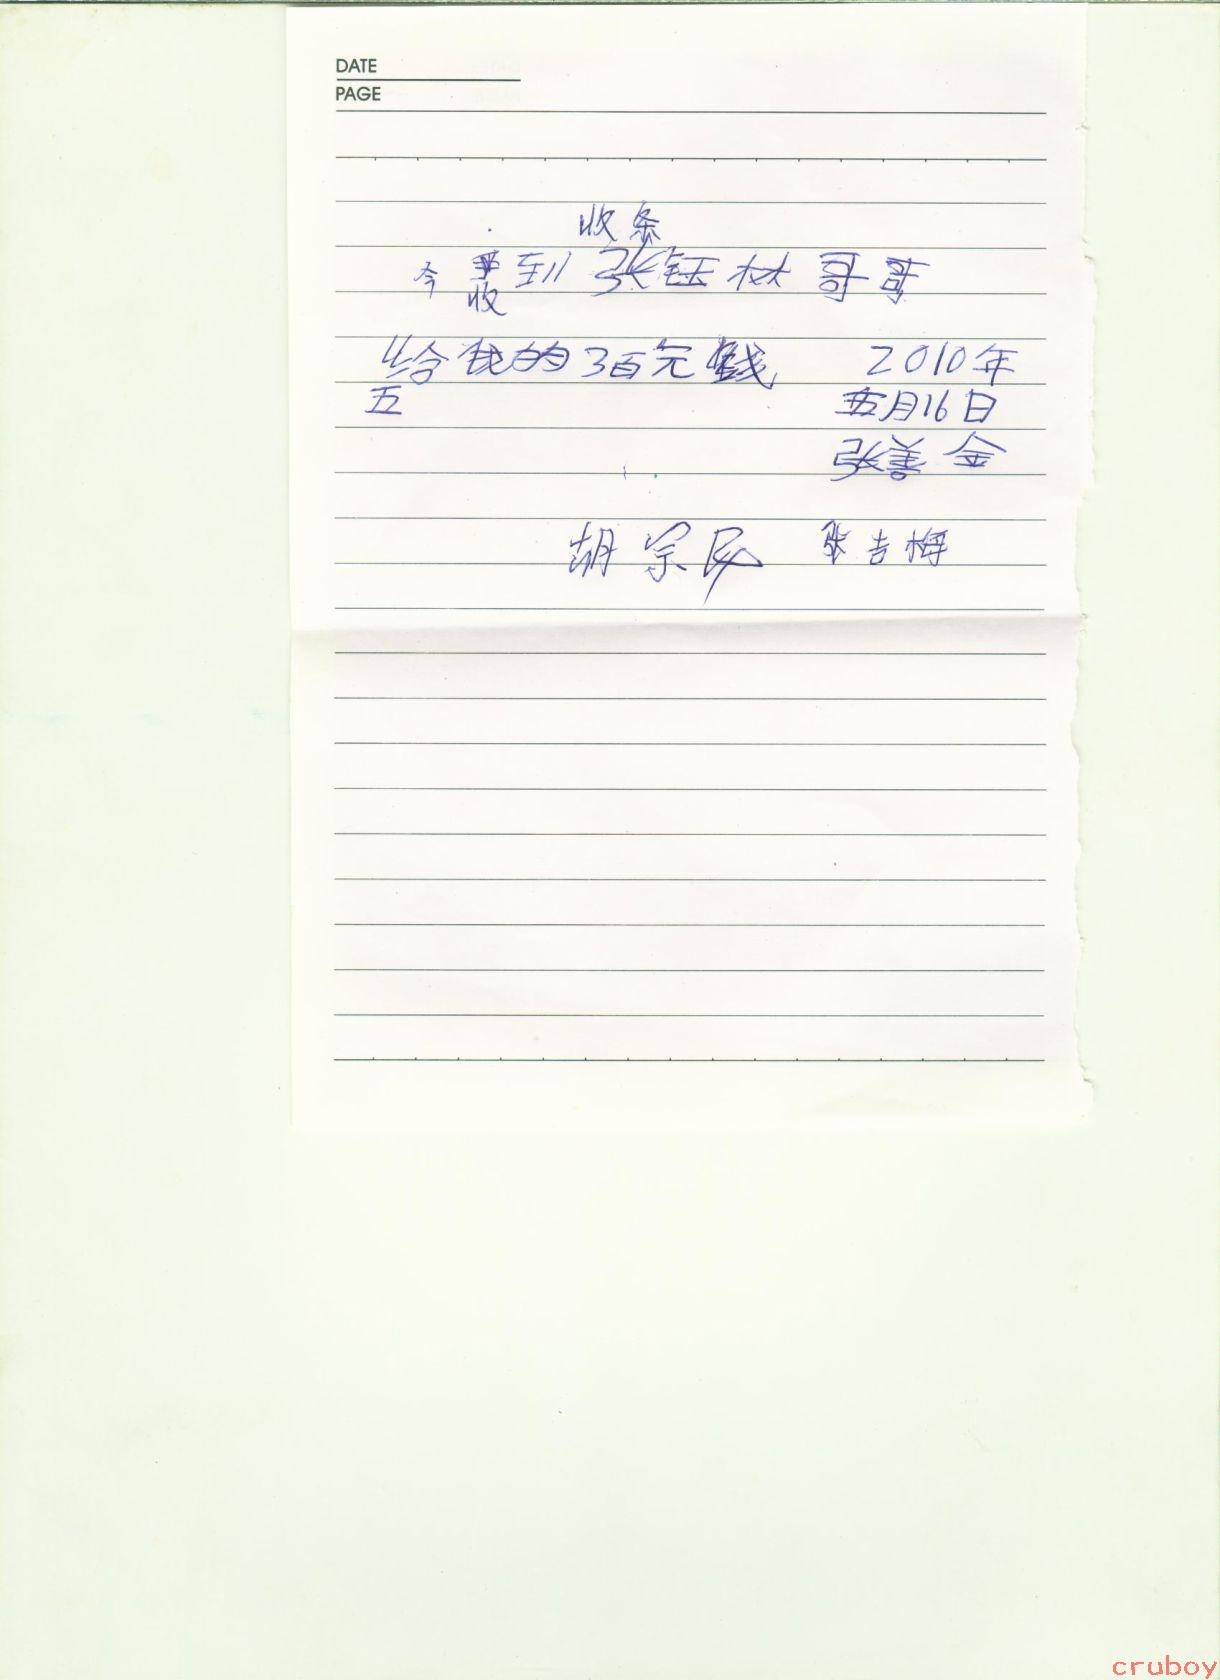 DATE
PAGE
收条
今收到张钰林哥哥
给我的3百元钱 2010年
五 五月16日
张善金
胡宗民 张吉梅
cruboy